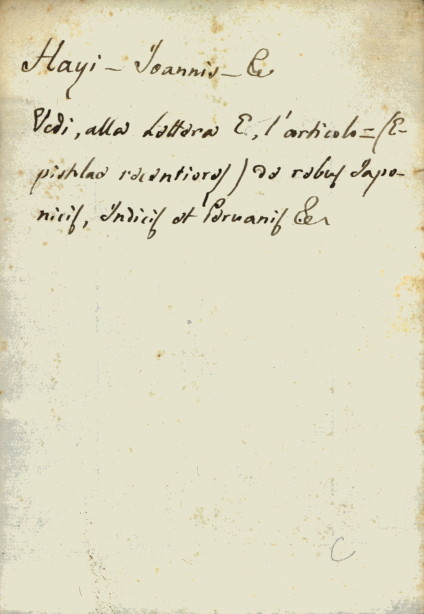 Hayi - Ioannis - &c
Vedi, alla Lettera E, l'articolo = (E-
pistolae recentiores) de rebus Iapo-
nicis, Indicis et Peruanis &c
C